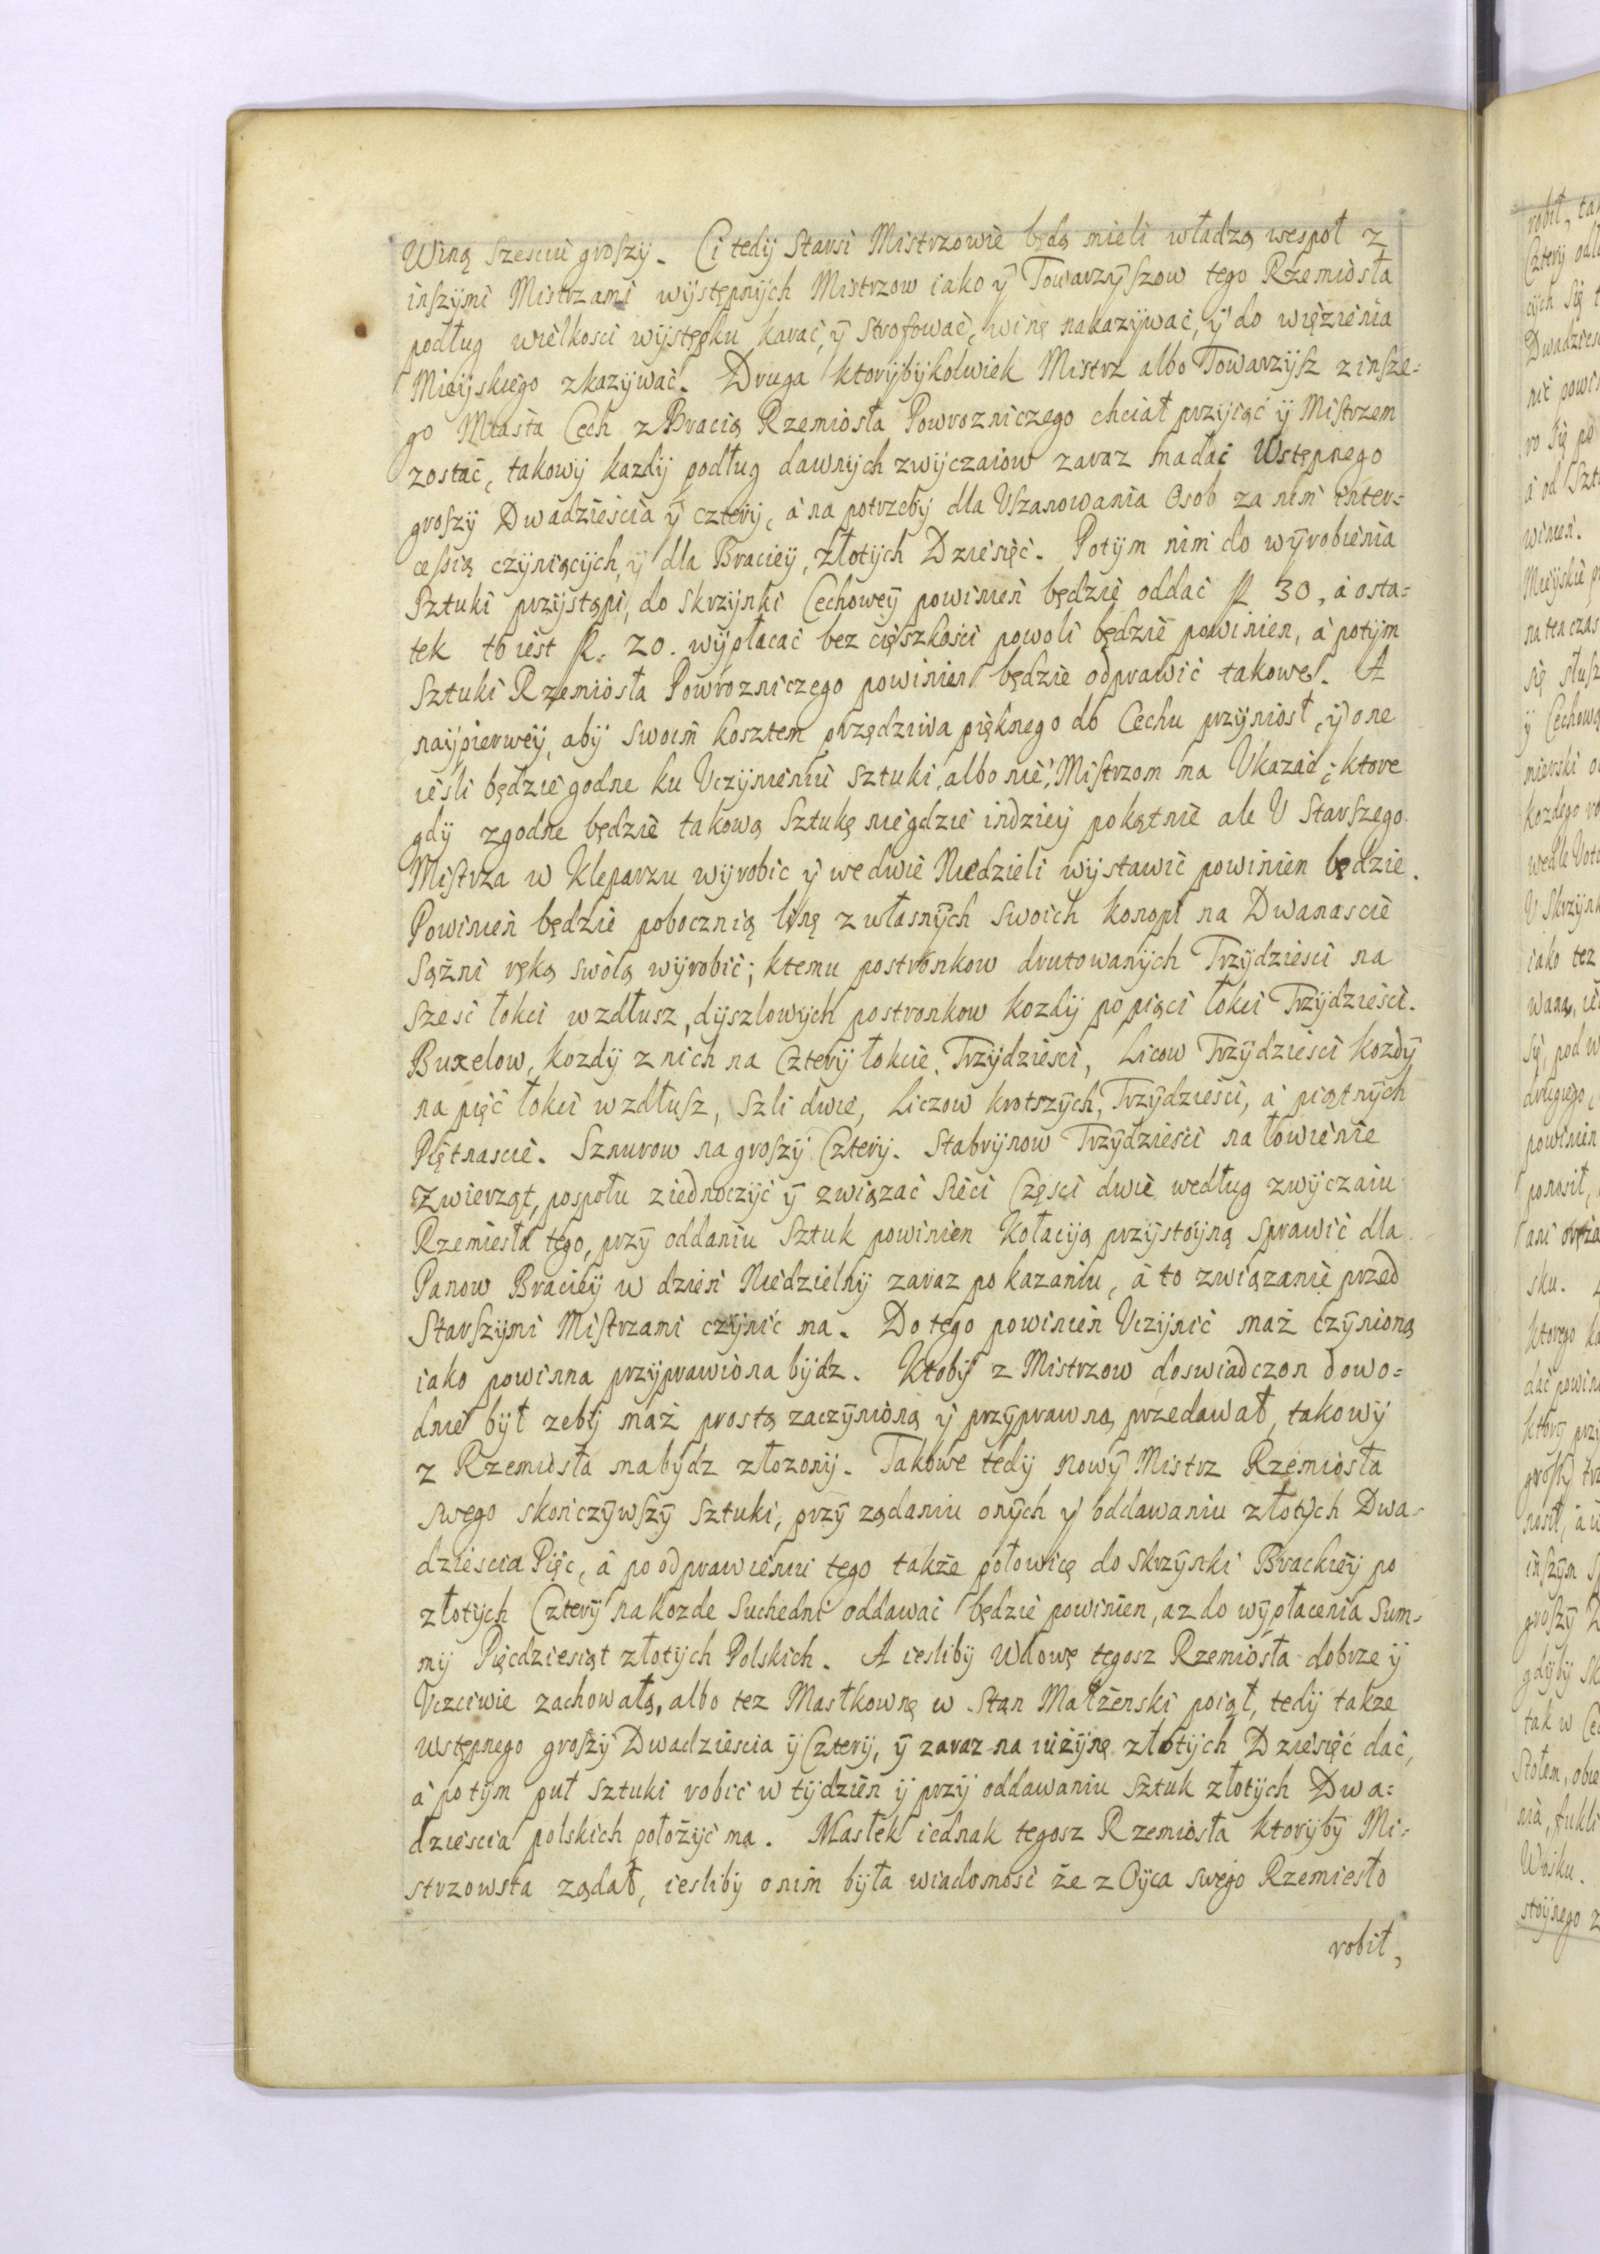 Winą szesciu groszy. Ci tedy Starsi Mistrzowie będą mieli władzą wespoł z
inszymi Mistrzami występnych Mistrzow iako ÿ Towarzyszow tego Rzemiosła
podług wielkosci występku karać, ÿ strofować, winę nakazywać, ÿ do więzienia
Mieyskiego zkazywać. Druga ktorybykolwiek Mistrz albo Towarzysz z insze=
go Miasta Cech z Bracią Rzemiosła Powrozniczego chciał przyiąć ÿ Mistrzem
zostać, takowy kazdy podług dawnych zwyczaiow zaraz ma dać Wstępnego
groszy Dwadzieścia ÿ cztery, à na potrzeby dla Uszanowania Osob za nim inter=
cessią czyniących, ÿ dla Braciey, złotych Dziesięć. Potym nim do wyrobienia
Sztuki przystąpi, do skrzynki Cechowey powinien będzie oddać fl 30, à osta=
tek to iest fl. 20. wypłacać bez cięszkości powoli będzie powinien, à potym
Sztuki Rzemiosła Powrozniczego powinien będzie odprawić takowe. A
naypierwey, aby swoim kosztem przędziwa pięknego do Cechu przyniosł, ÿ one
iesli będzie godne ku Uczynieniu sztuki, albo nie, Mistrzom ma Ukazać; ktore
gdy zgodne będzie takową Sztukę niegdzie indziey pokątnie ale U Starszego
Mistrza w Kleparzu wyrobic ÿ we dwie Niedzieli wystawić powinien będzie.
Powinien będzie pobocznią linę z własnych swoich konopi na Dwanascie
Sążni ręką swoią wyrobić; ktemu postronkow drutowanych Trzydziesci na
szesc łokci wzdłusz, dyszlowych postronkow kozdy po piąci łokci Trzydzieści.
Buxelow, kozdy z nich na Cztery łokcie, Trzydziesci, Licow Trzydziesci kozdy
na pięć łokci wzdłusz, szli dwie, Liczow krotszych, Trzydziesci, à piątnych
Piętnascie. Sznurow na groszy Cztery. Stabrynow Trzydziesci na łowienie
Zwierząt, pospołu ziednoczyć ÿ związać Sieci Częsci dwie według zwyczaiu
Rzemiesła tego, przy oddaniu Sztuk powinien Kołacyą przystoyną sprawić dla
Panow Braciey w dzień Niedzielny zaraz po kazaniu, à to związanie przed
Starszymi Mistrzami czynić ma. Do tego powinien Uczynić maź czynioną
iako powinna przyprawiona bydz. Ktoby z Mistrzow doswiadczon dowo=
dnie był zeby maź prostą zaczynioną ÿ przyprawną przedawał, takowy
z Rzemiosła ma bydz złozony. Takowe tedy nowy Mistrz Rzemiosła
swego skończywszy sztuki, przy ządaniu onych ÿ oddawaniu złotych Dwa=
dziescia Pięc, à po odprawieniu tego także połowicę do skrzynki Brackiey po
złotych Cztery na kozde Suchedni oddawać będzie powinien, az do wypłacenia Sum=
my Pięcdziesiąt złotych Polskich. A iesliby Wdowę tegosz Rzemiosła dobrze ÿ
Uczciwie zachowałą, albo tez Mastkownę w stan Małżenski poiął, tedy takze
wstępnego groszy Dwadziescia ÿ Cztery, ÿ zaraz na iużynę złotych Dziesięć dać,
à potym puł sztuki robić w tydzień ÿ przy oddawaniu sztuk złotych Dwa=
dziescia polskich położyć ma. Mastek iednak tegosz Rzemiosła ktoryby Mi=
strzowsta ządał, iesliby o nim była wiadomość że z Oyca swego Rzemiesło
robił,